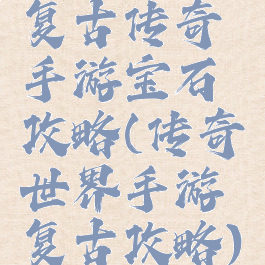 复古传奇
手游宝石
攻略(传奇
世界手游
复古攻略)